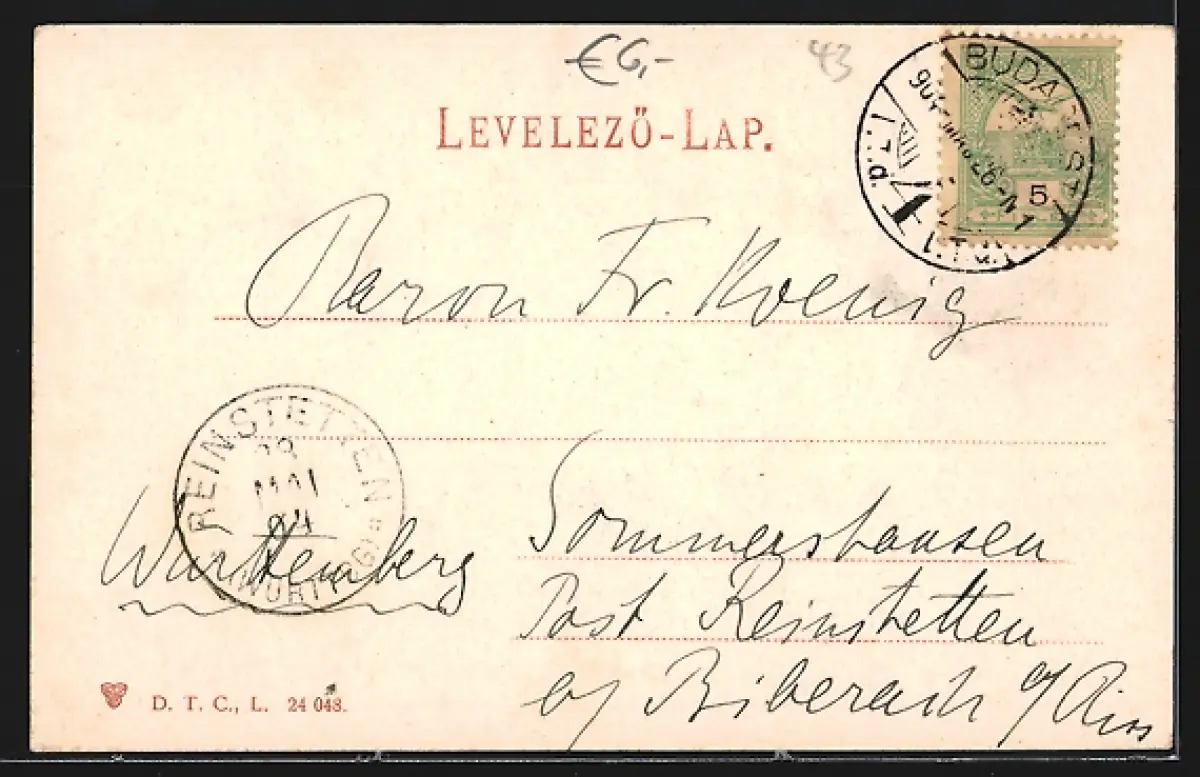 €6,-
43
LEVELEZŐ-LAP.
BUDAPEST
5
Baron Fr. Koenig
REINSTETTEN
MAI
Württemberg
Sommershausen
Post Reinstetten
a/ Biberach a/ Riss
D. T. C., L. 24 048.